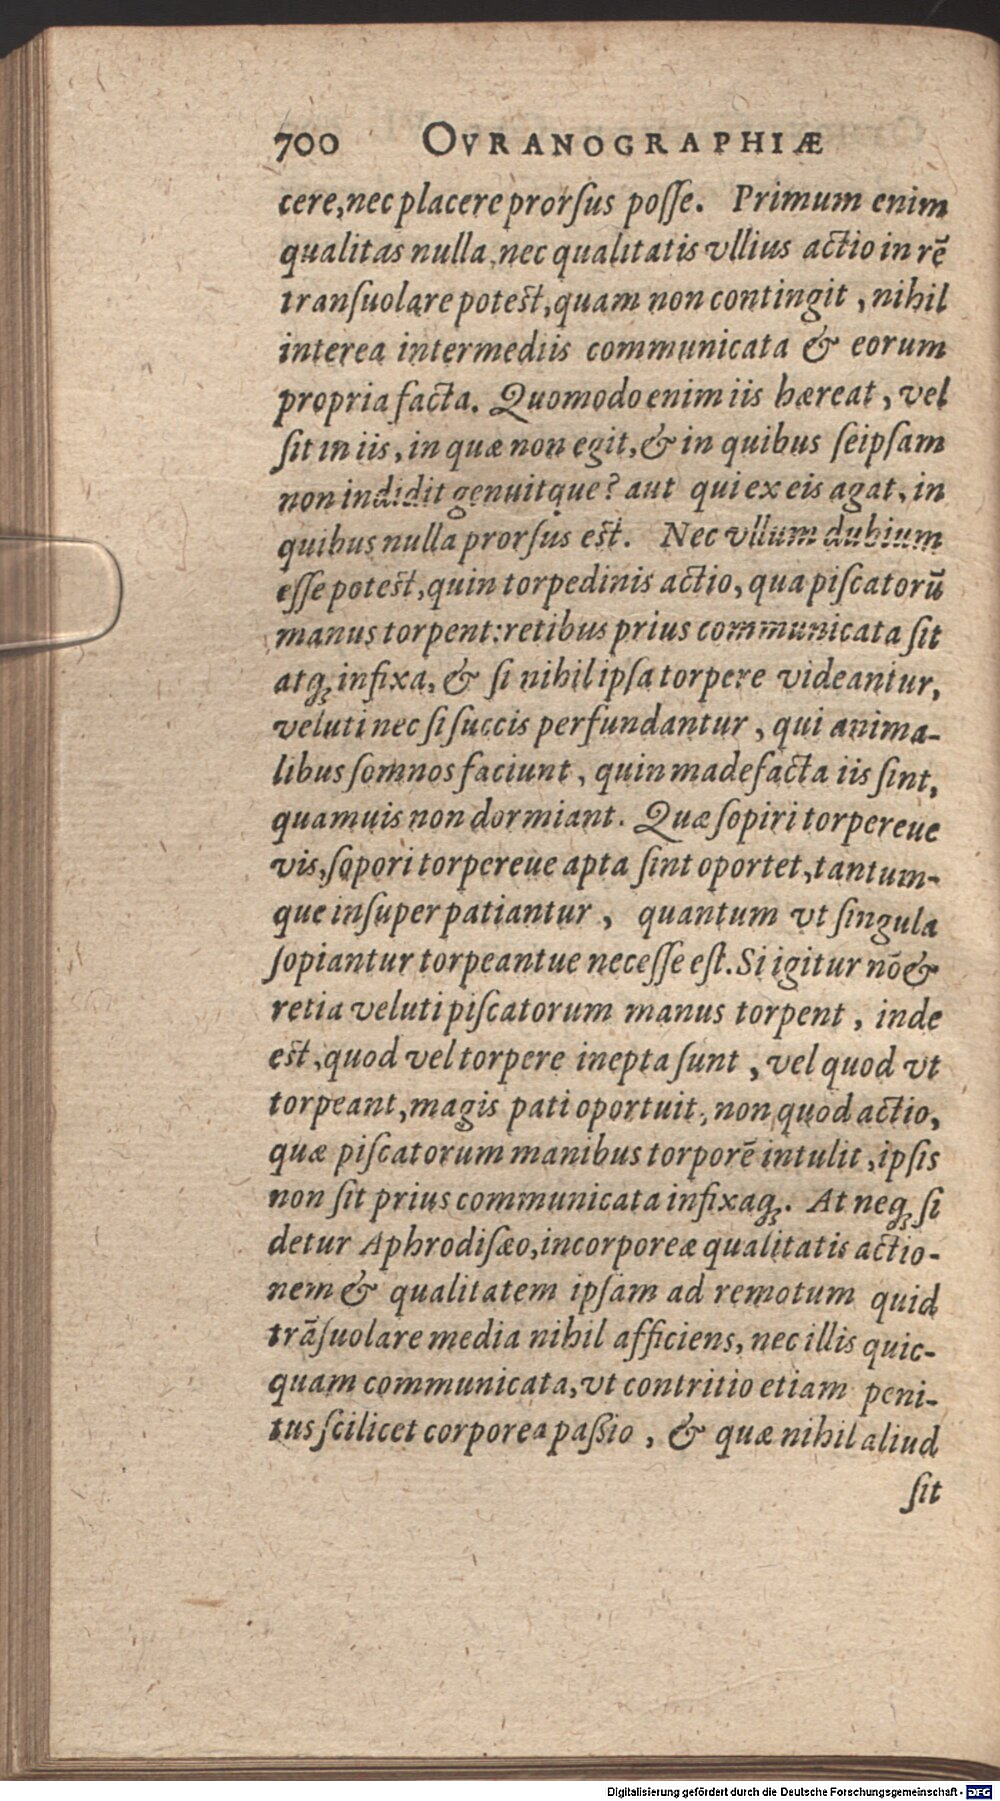 700 OVRANOGRAPHIÆ
cere, nec placere prorſus poſſe. Primum enim
qualitas nulla, nec qualitatis vllius actio in rē
tranſuolare potest, quam non contingit, nihil
interea intermediis communicata & eorum
propria facta. Quomodo enim iis hæreat, vel
ſit in iis, in quæ non egit, & in quibus ſeipſam
non indidit genuitque? aut qui ex eis agat, in
quibus nulla prorſus est. Nec vllum dubium
eſſe potest, quin torpedinis actio, qua piſcatorū
manus torpent: retibus prius communicata ſit
atq; infixa, & ſi nihil ipſa torpere videantur,
veluti nec ſi ſuccis perfundantur, qui anima-
libus ſomnos faciunt, quin madefacta iis ſint,
quamuis non dormiant. Quæ ſopiri torpereue
vis, ſopori torpereue apta ſint oportet, tantum-
que inſuper patiantur, quantum vt ſingula
ſopiantur torpeantue neceſſe eſt. Si igitur nō &
retia veluti piſcatorum manus torpent, inde
est, quod vel torpere inepta ſunt, vel quod vt
torpeant, magis pati oportuit, non quod actio,
quæ piſcatorum manibus torporē intulit, ipſis
non ſit prius communicata infixaq;. At neq; ſi
detur Aphrodiſæo, incorporeæ qualitatis actio-
nem & qualitatem ipſam ad remotum quid
trāſuolare media nihil afficiens, nec illis quic-
quam communicata, vt contritio etiam peni-
tus ſcilicet corporea paſsio, & quæ nihil aliud
ſit
Digitalisierung gefördert durch die Deutsche Forschungsgemeinschaft - DFG